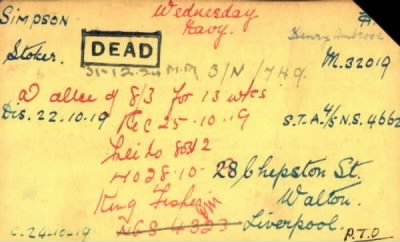 SIMPSON
Wednesday
Navy.
Stoker.
DEAD
Henry
M.32019
31-12-24 M.M 3/N / 749.
of 8/3 for 13 wks
Dis. 22.10.19
Rec 25-10-19
S.T.A. 4/5 N.S. 4662
8052
28 Chepston St.
H028.10
Walton.
King Fisher
Liverpool.
C.24-10-19
NGS 4323
P.T.O